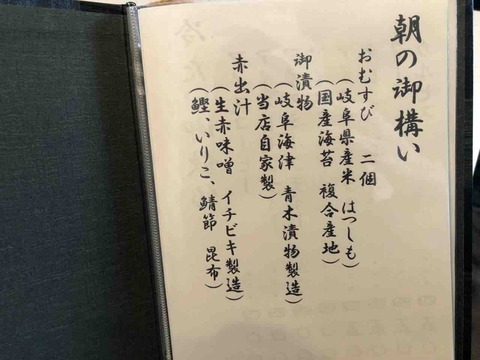 朝の御構い
おむすび 二個
(岐阜県産米 はつしも)
(国産海苔 複合産地)
御漬物
(岐阜海津 青木漬物製造)
(当店自家製)
赤出汁
(生赤味噌 イチビキ製造)
(鰹、いりこ、鯖節 昆布)